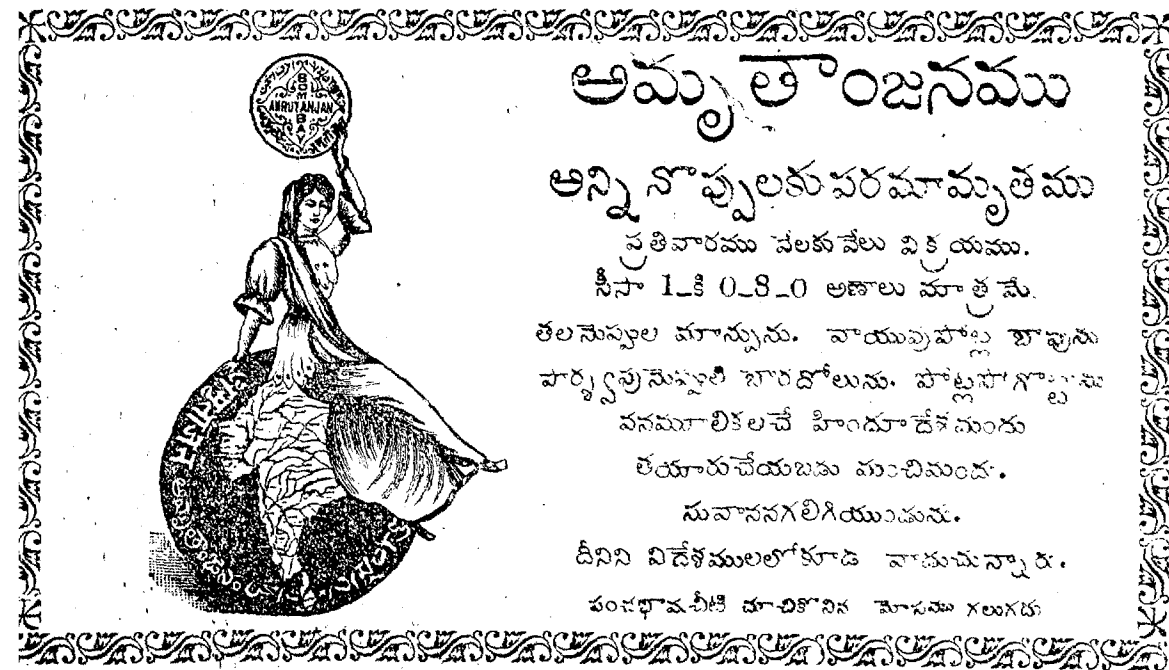 BOMBAY
AMRUTANJAN
అమృతాంజనము
అన్ని నొప్పులకు పరమామృతము
ప్రతివారము వేలకువేలు విక్రయము.
సీసా 1_కి 0_8_0 అణాలు మాత్రమే.
తలనొప్పుల మాన్పును. వాయువుపోట్ల బాపును
పార్శ్వపునొప్పుల బారదోలును. పోట్లపోగొట్టును
వనమూలికలచే హిందూదేశమందు
తయారుచేయబడు మంచిమందు.
సువాసనగలిగియుండును.
దీనిని విదేశములలోకూడ వాడుచున్నారు.
చూచికొనిన మోసము గలుగదు